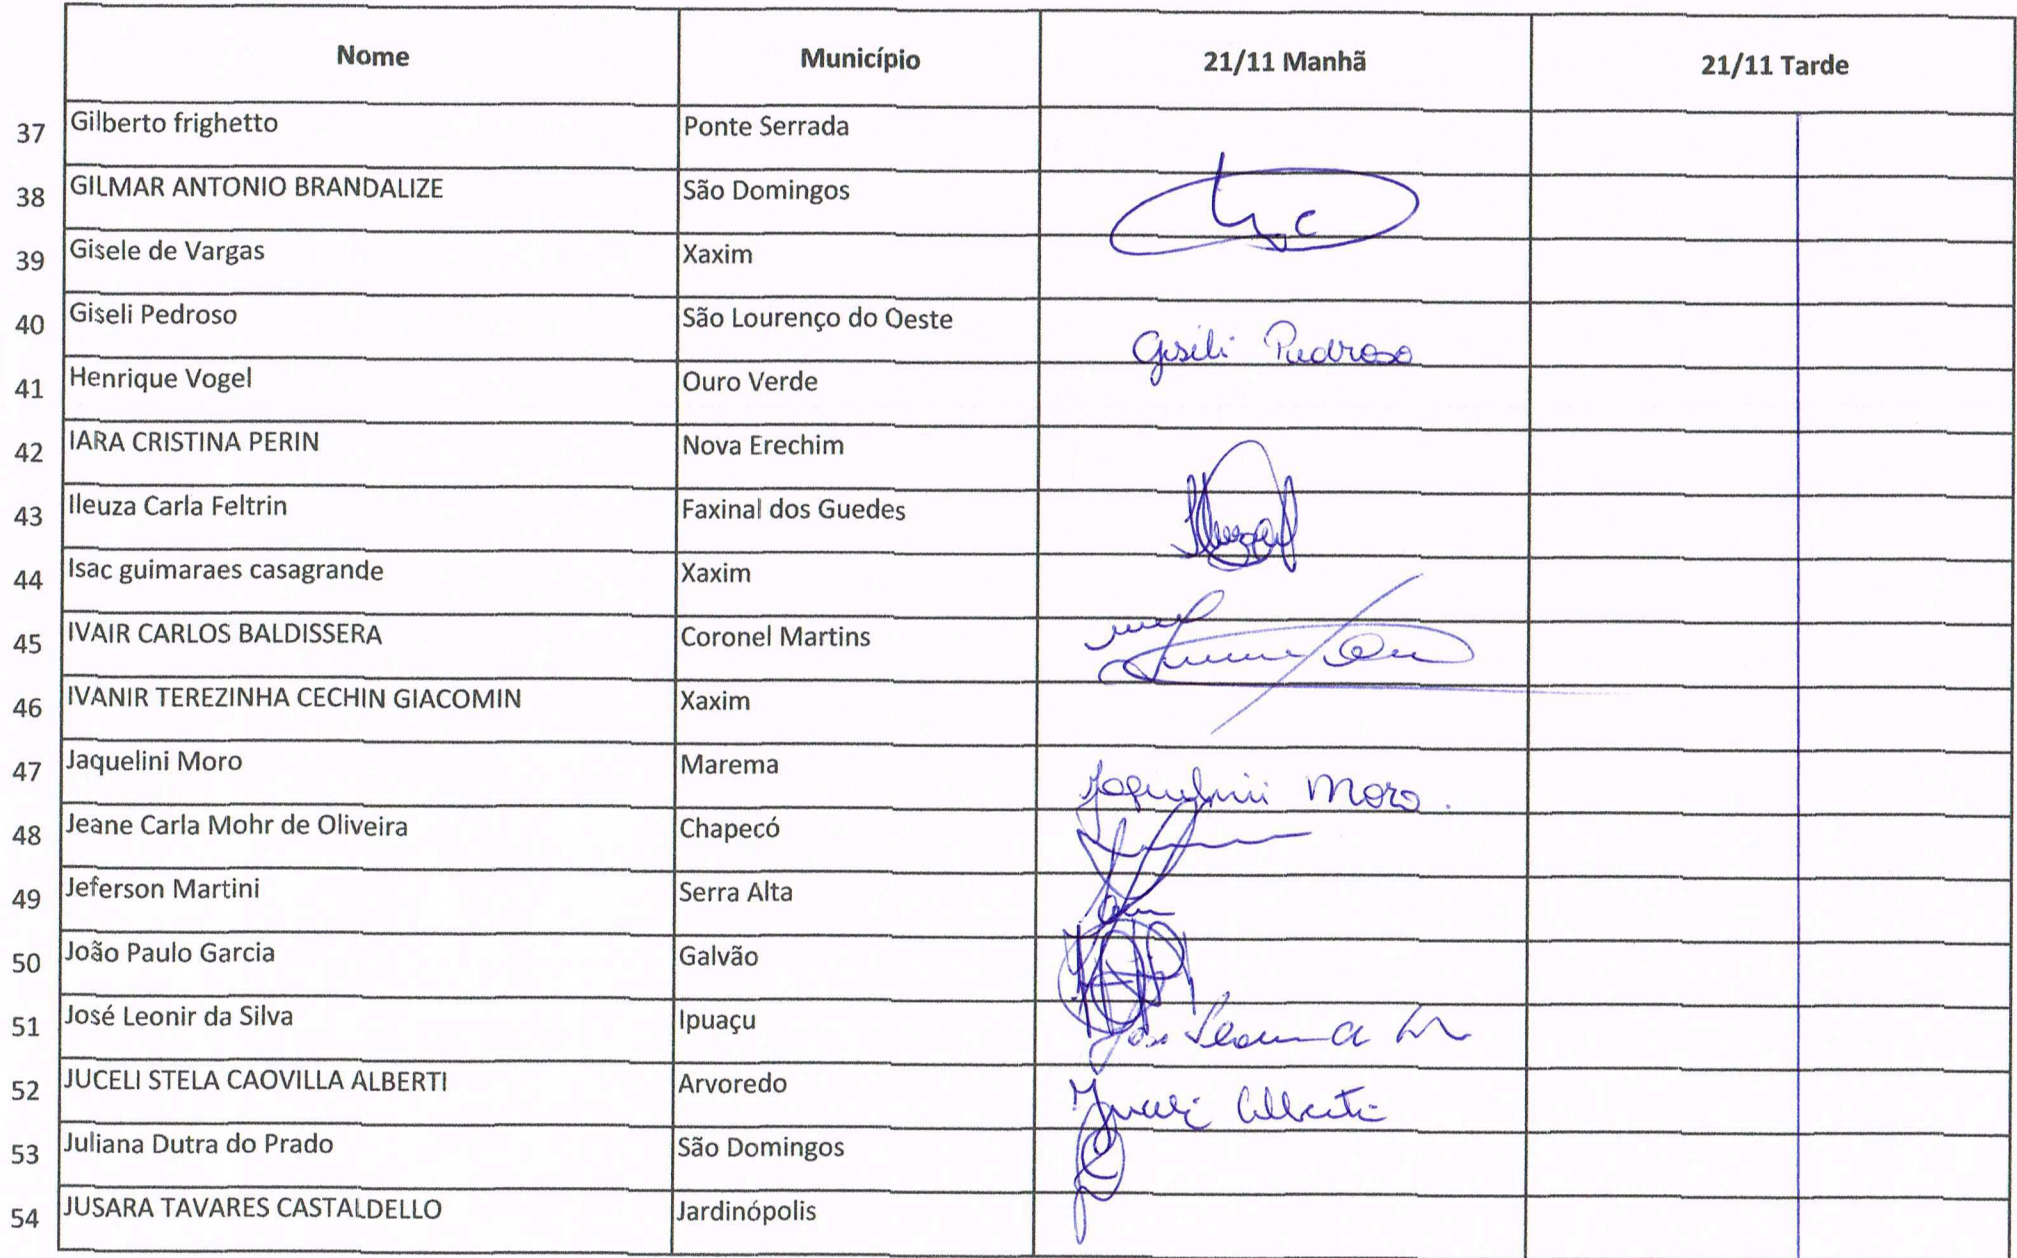 Nome Município 21/11 Manhã 21/11 Tarde
37 Gilberto frighetto Ponte Serrada
38 GILMAR ANTONIO BRANDALIZE São Domingos
39 Gisele de Vargas Xaxim
40 Giseli Pedroso São Lourenço do Oeste Giseli Pedroso
41 Henrique Vogel Ouro Verde
42 IARA CRISTINA PERIN Nova Erechim
43 Ileuza Carla Feltrin Faxinal dos Guedes
44 Isac guimaraes casagrande Xaxim
45 IVAIR CARLOS BALDISSERA Coronel Martins
46 IVANIR TEREZINHA CECHIN GIACOMIN Xaxim
47 Jaquelini Moro Marema Jaquelini Moro.
48 Jeane Carla Mohr de Oliveira Chapecó
49 Jeferson Martini Serra Alta
50 João Paulo Garcia Galvão
51 José Leonir da Silva Ipuaçu
52 JUCELI STELA CAOVILLA ALBERTI Arvoredo Juceli Alberti
53 Juliana Dutra do Prado São Domingos
54 JUSARA TAVARES CASTALDELLO Jardinópolis